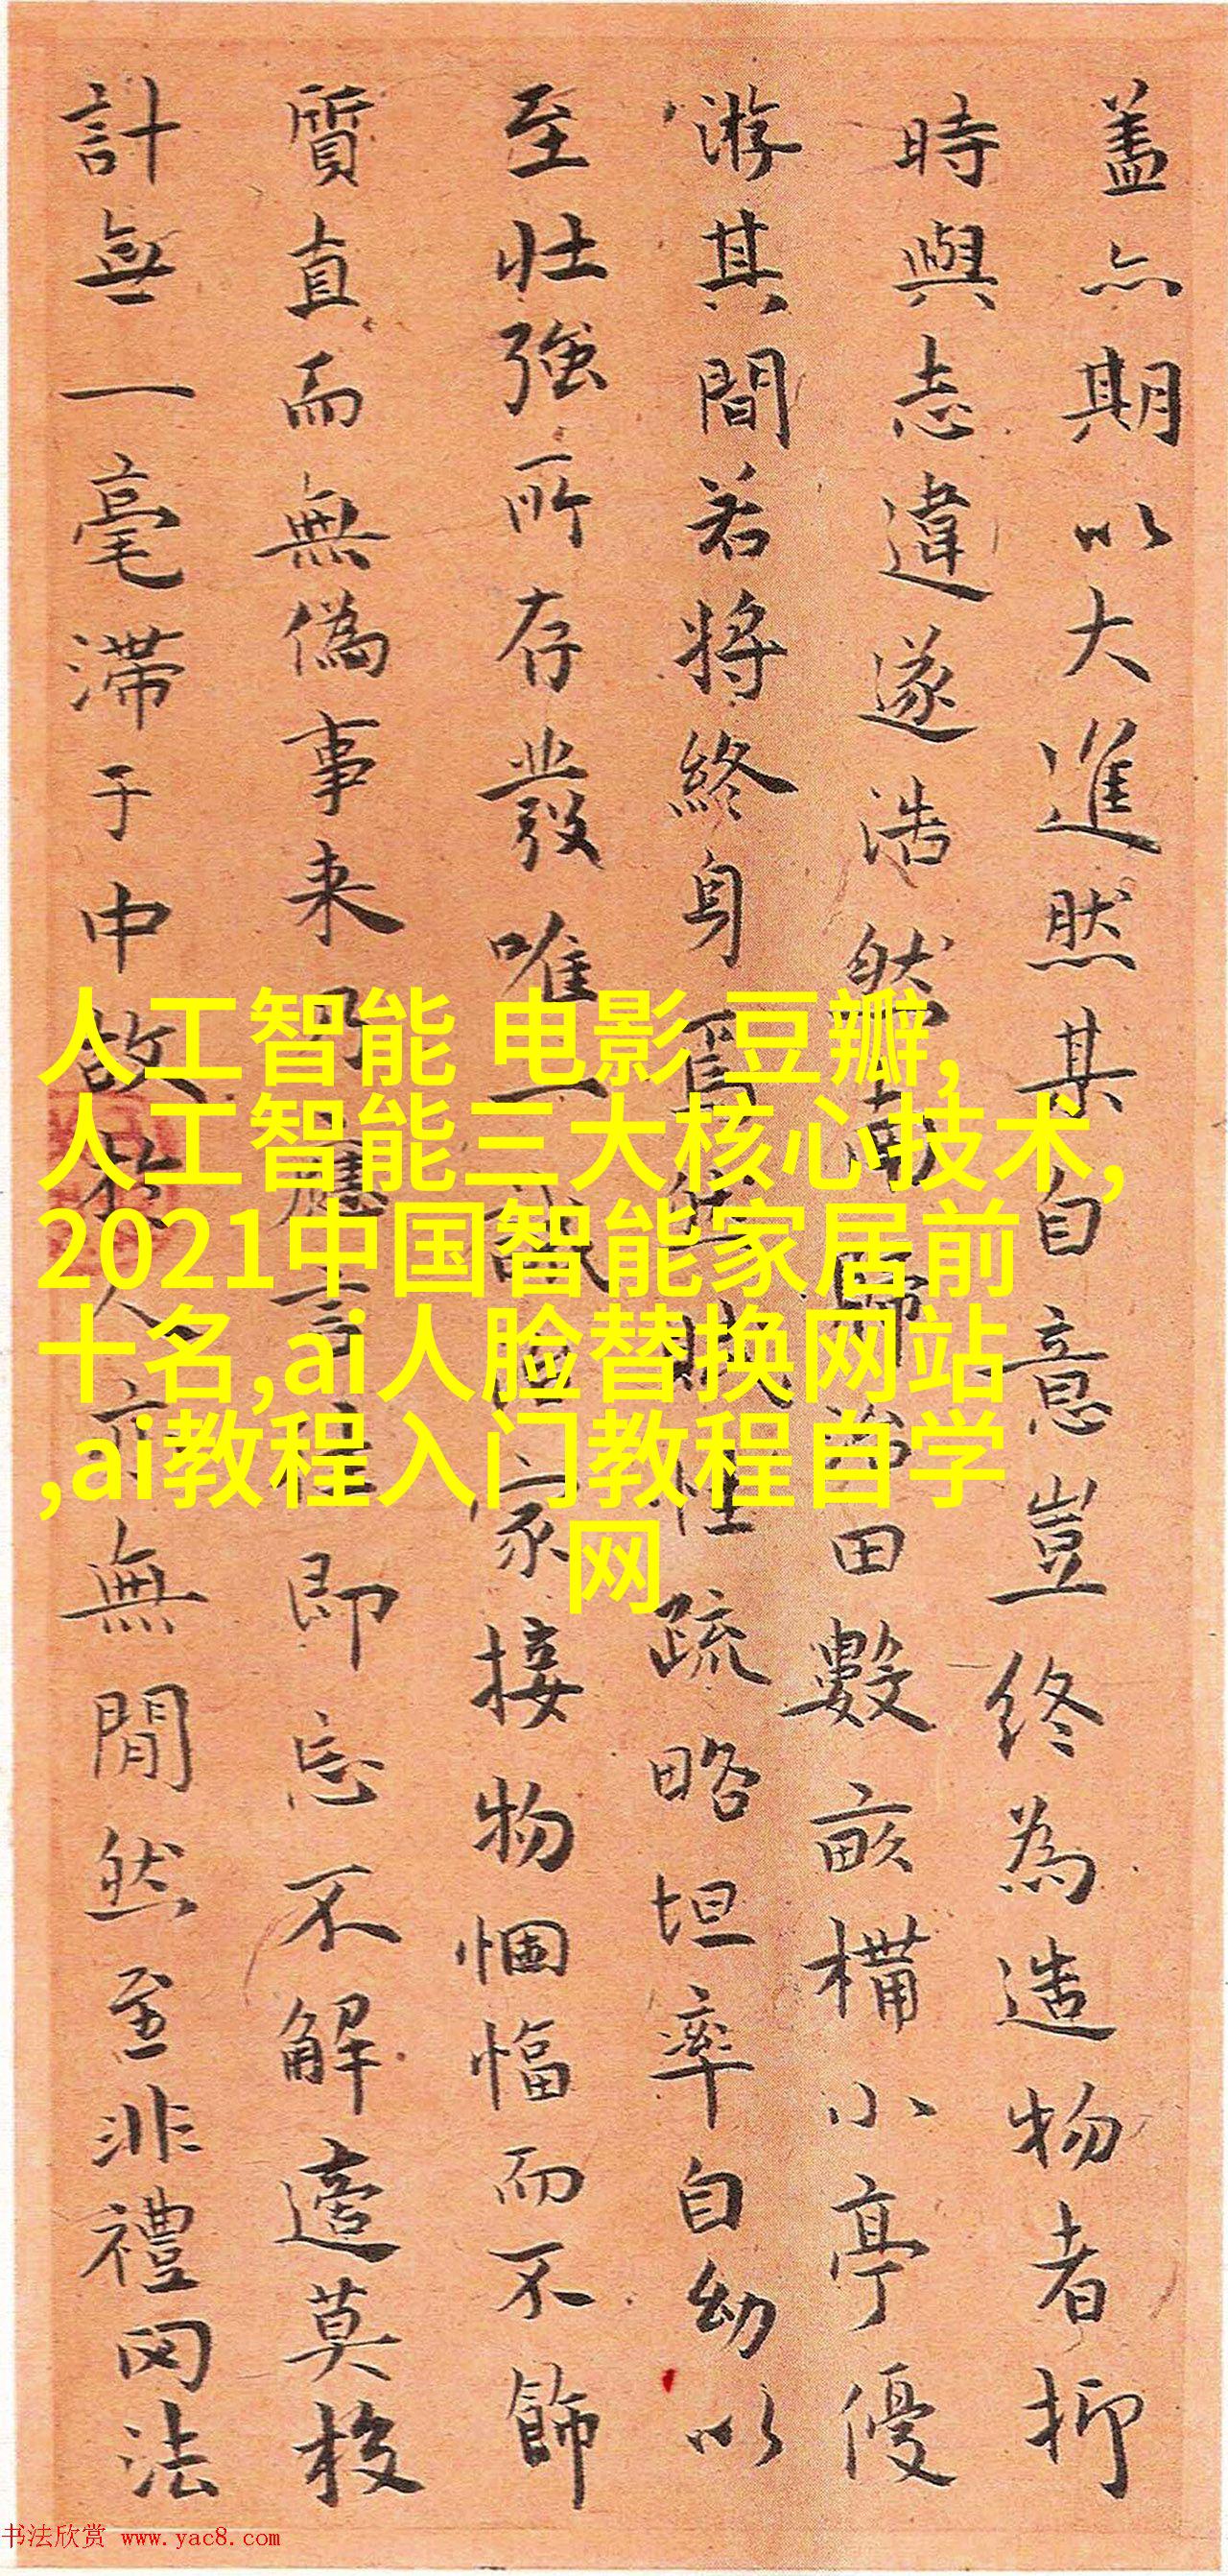 盖亦期以大進然某自意豈終為造物者抑
時與志違遂浩然南歸治田數畝構小亭優
游其間若將終身焉然賦性疏略坦率自幼以
至壯強所存發唯一誠家接物悃愊而不飾
質直而無偽事来乃應言往即忘不解適莫校
計無一毫滞于中故於人亦無間然至非禮罔法
人工智能 电影 豆瓣,
人工智能三大核心技术,
2021中国智能家居前
十名,ai人脸替换网站
,ai教程入门教程自学
网
书法欣赏 www.yac8.com